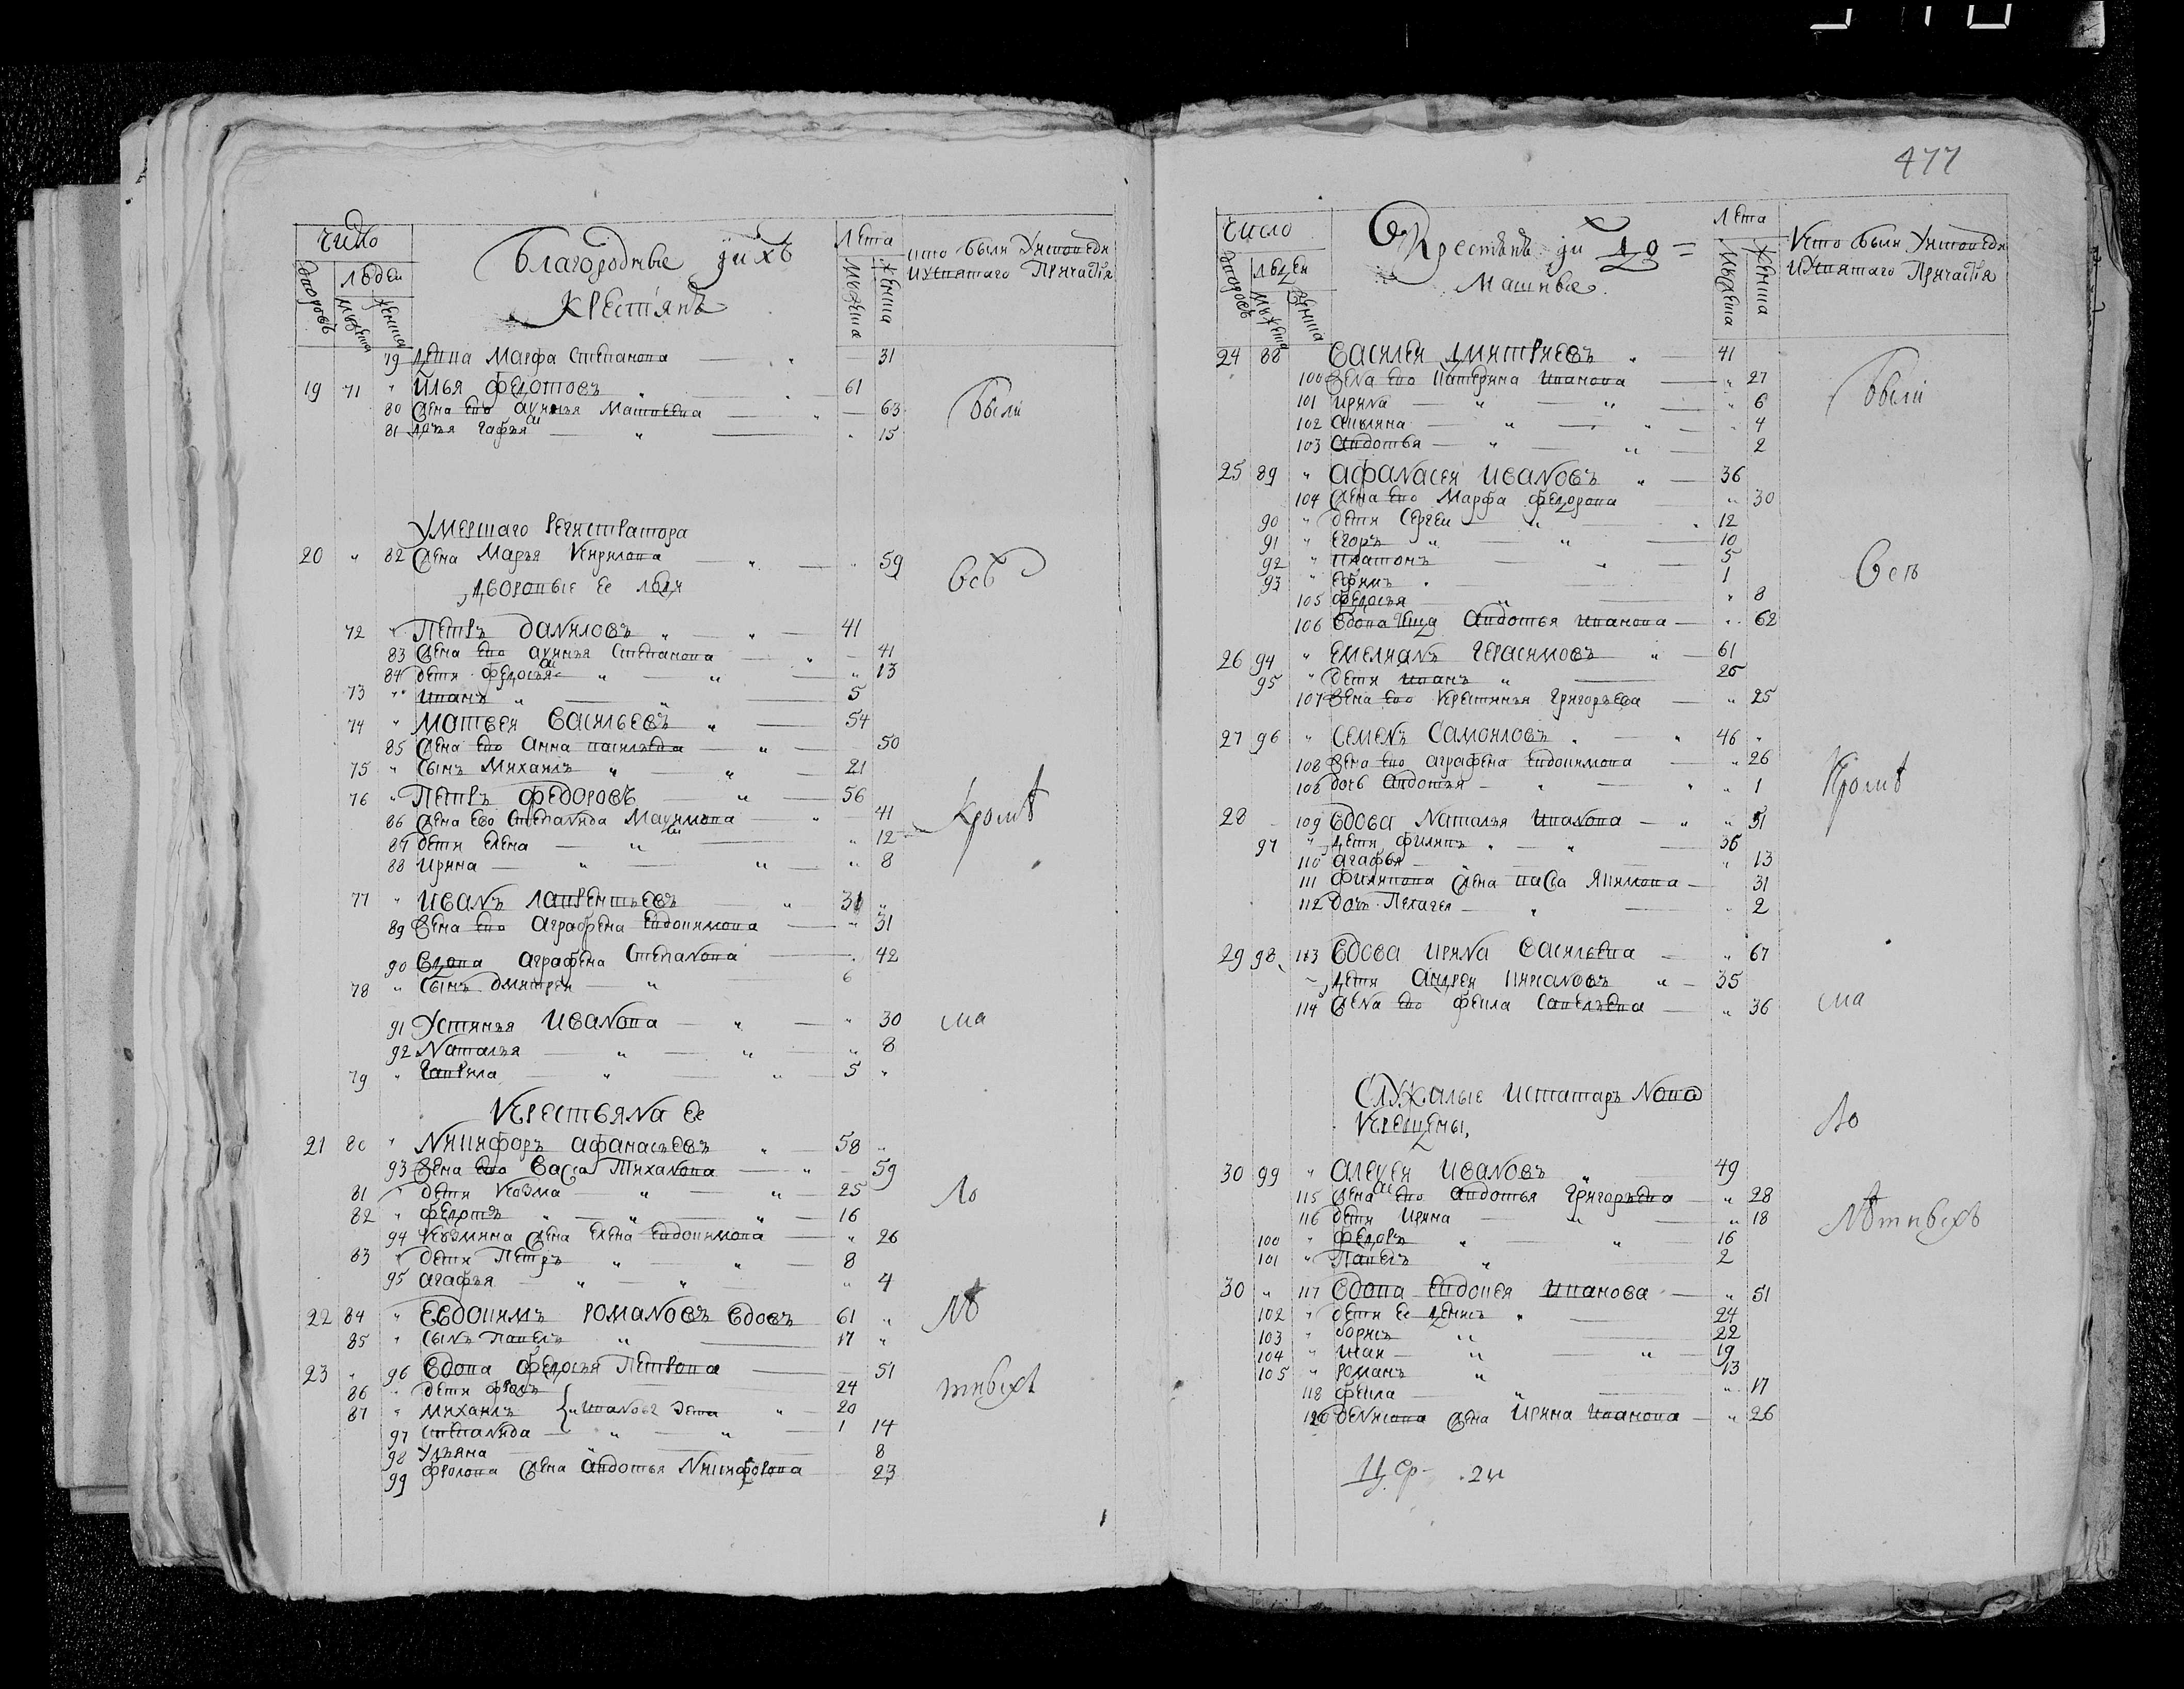 477
Число
Благородные и ихъ
Крестьянъ
Лета
кто были уисповеди
исвятаго Причастия
дворовъ
людеи
мужеска
женска
мужеска
женска
79 Марфа Степанова 31
19 71 " Илья Федотовъ 61
80 жена ево Аксинья Матвеева 63
81 Гафья 15
были
умершаго регистратора
20 " 82 жена Марья Кирилова 59
все
дворовые ее люди
72 " Петръ Даниловъ 41
83 жена ево Аксинья Степанова 41
84 дети Федосья 13
73 " Иванъ 5
74 " Матвеи Васильевъ 54
85 жена ево Анна Васильева 50
75 " сынъ Михаилъ 21
76 " Петръ Федоровъ 56
86 жена ево Степанида Максимова 41
87 дети Елена 12
88 Ирина 8
кромѣ
77 " Иванъ Лаврентьевъ 31
89 жена ево Аграфена Евдокимова 31
90 вдова Аграфена Степанова 42
78 " сынъ Дмитреи 6
91 Устинья Иванова 30
ма
92 Наталья 8
79 " Гаврила 5
Крестьяна ее
21 80 " Никифоръ Афанасьевъ 58
93 жена ево Васса Тиханова 59
81 " дети Козма 25
ло
82 " Федотъ 16
94 Козмина жена Елена Евдокимова 26
83 " дети Петръ 8
95 Агафья 4
22 84 " Евдокимъ Романовъ вдовъ 61
лѣ
85 " сынъ Павелъ 17
23 " 96 вдова Федосья Петрова 51
86 " дети Фролъ 24
тныхъ
87 " Михаилъ Ивановы дети 20
97 Степанида 1 14
98 Ульяна 8
99 Фролова жена Авдотья Никифорова 23
Число
Крестьянъ и 10
Машные
Лета
Кто были уисповеди
исвятаго Причастия
дворовъ
людеи
мужеска
женска
мужеска
женска
24 88 Василеи Дмитриевъ 41
100 жена ево Катерина Иванова 27
101 Ирина 6
были
102 Акилина 4
103 Авдотья 2
25 89 " Афанасеи Ивановъ 36
104 жена ево Марфа Федорова 30
90 " дети Сергеи 12
91 " Егоръ 10
92 " Платонъ 5
93 " Ефимъ 1
все
105 Федосья 8
106 вдова Авдотья Иванова 62
26 94 " Емелианъ Герасимовъ 61
95 " дети Иванъ 25
107 жена ево Крестинья Григорьева 25
27 96 " Семенъ Самоиловъ 46
108 жена ево Аграфена Евдокимова 26
108 дочь Авдотья 1
Кромѣ
28 109 вдова Наталья Иванова 51
97 " дети Филипъ 36
110 Агафья 13
111 Филипова жена Васса Якимова 31
112 дочь Пелагея 2
29 98 113 вдова Ирина Васильева 67
дети Андреи 35
114 жена ево Фекла Савельева 36
ма
Служилые истатаръ ново
крещены,
ло
30 99 " Алексеи Ивановъ 49
115 жена ево Авдотья Григорьева 28
116 дети Ирина 18
лѣтныхъ
100 " Федоръ 16
101 " Павелъ 2
30 " 117 вдова Евдокея Иванова 51
102 " дети ее Денисъ 24
103 " Борисъ 22
104 " Иван 19
105 " Романъ 13
118 Фекла 17
120 Денисова жена Ирина Иванова 26